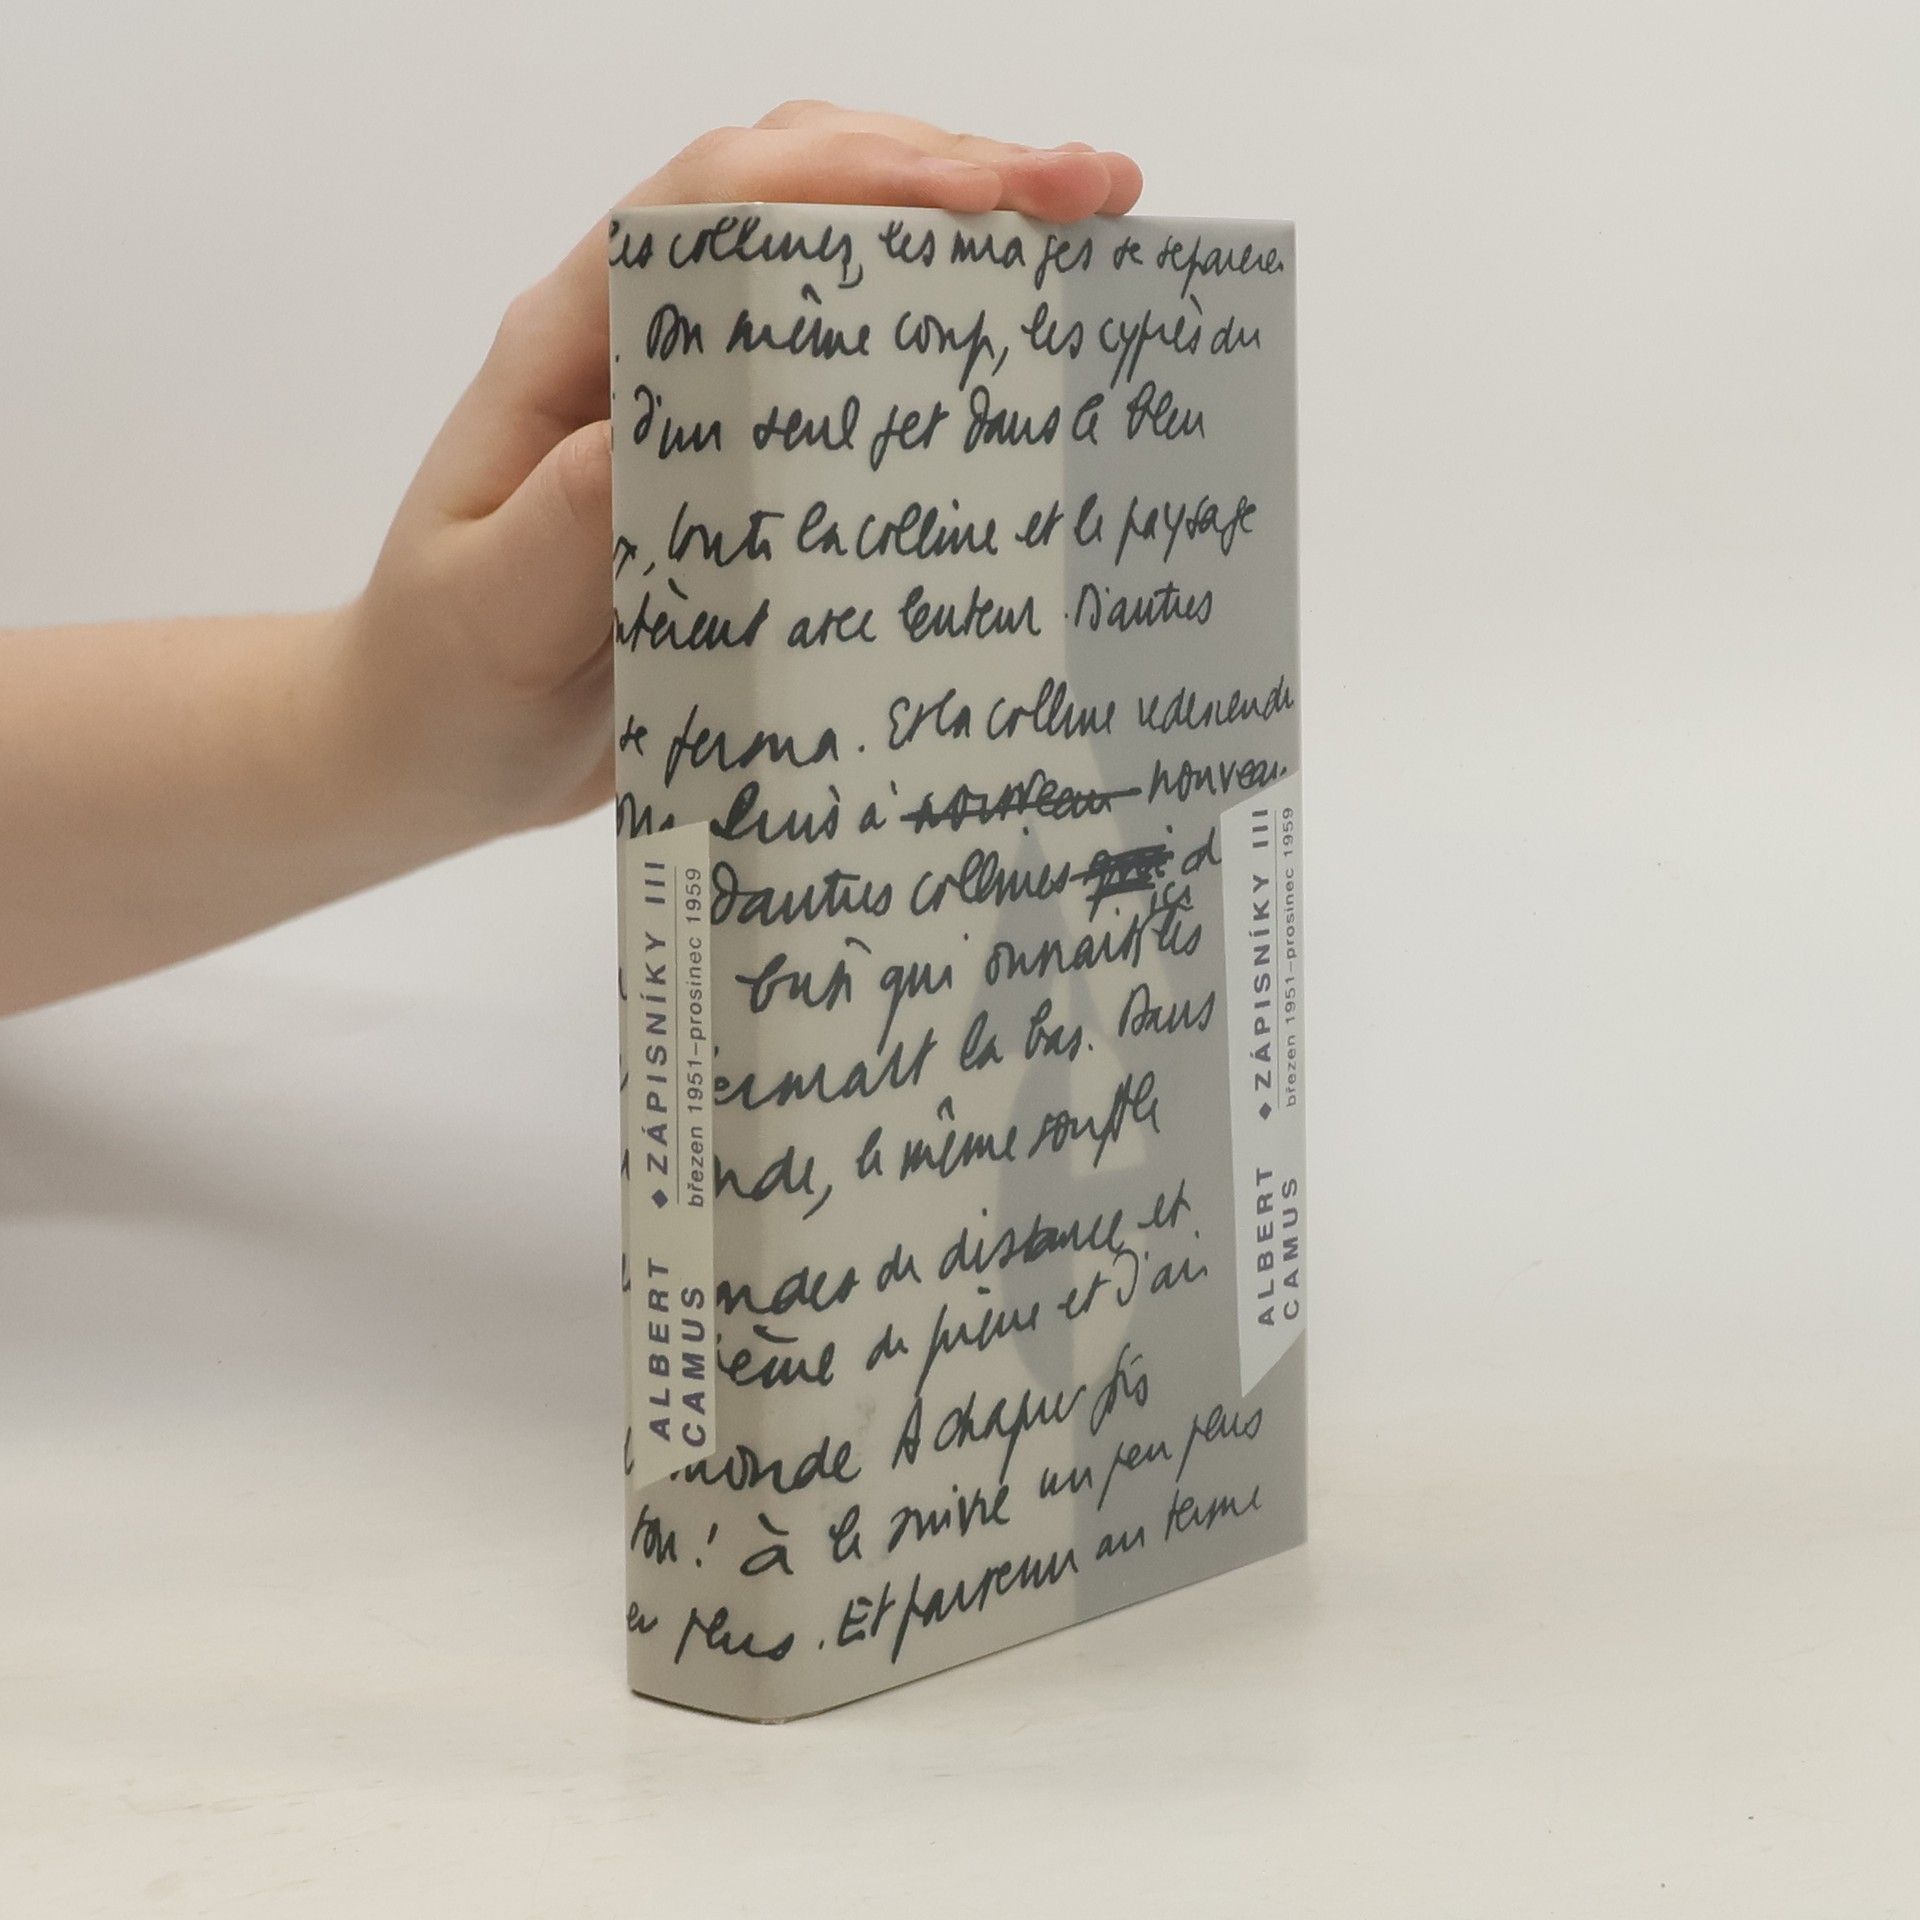 les collines, les nuages se séparèrent
. Du même coup, les cyprès du
d'un seul jet dans le bleu
, toute la colline et le paysage
ntèrent avec lenteur. D'autres
se ferma. Et la colline redescendi
puis à nouveau nouveau
D'autres collines qui d
ici
qui les
la bas. Dans
nde, le même souffle
ondes de distance et
ième de pierre et d'air
monde A chaque fois
ton! à le suivre un peu plus
eu plus. Et parvenu au terme
ALBERT CAMUS
◆ ZÁPISNÍKY III
březen 1951–prosinec 1959
ALBERT CAMUS
◆ ZÁPISNÍKY III
březen 1951–prosinec 1959